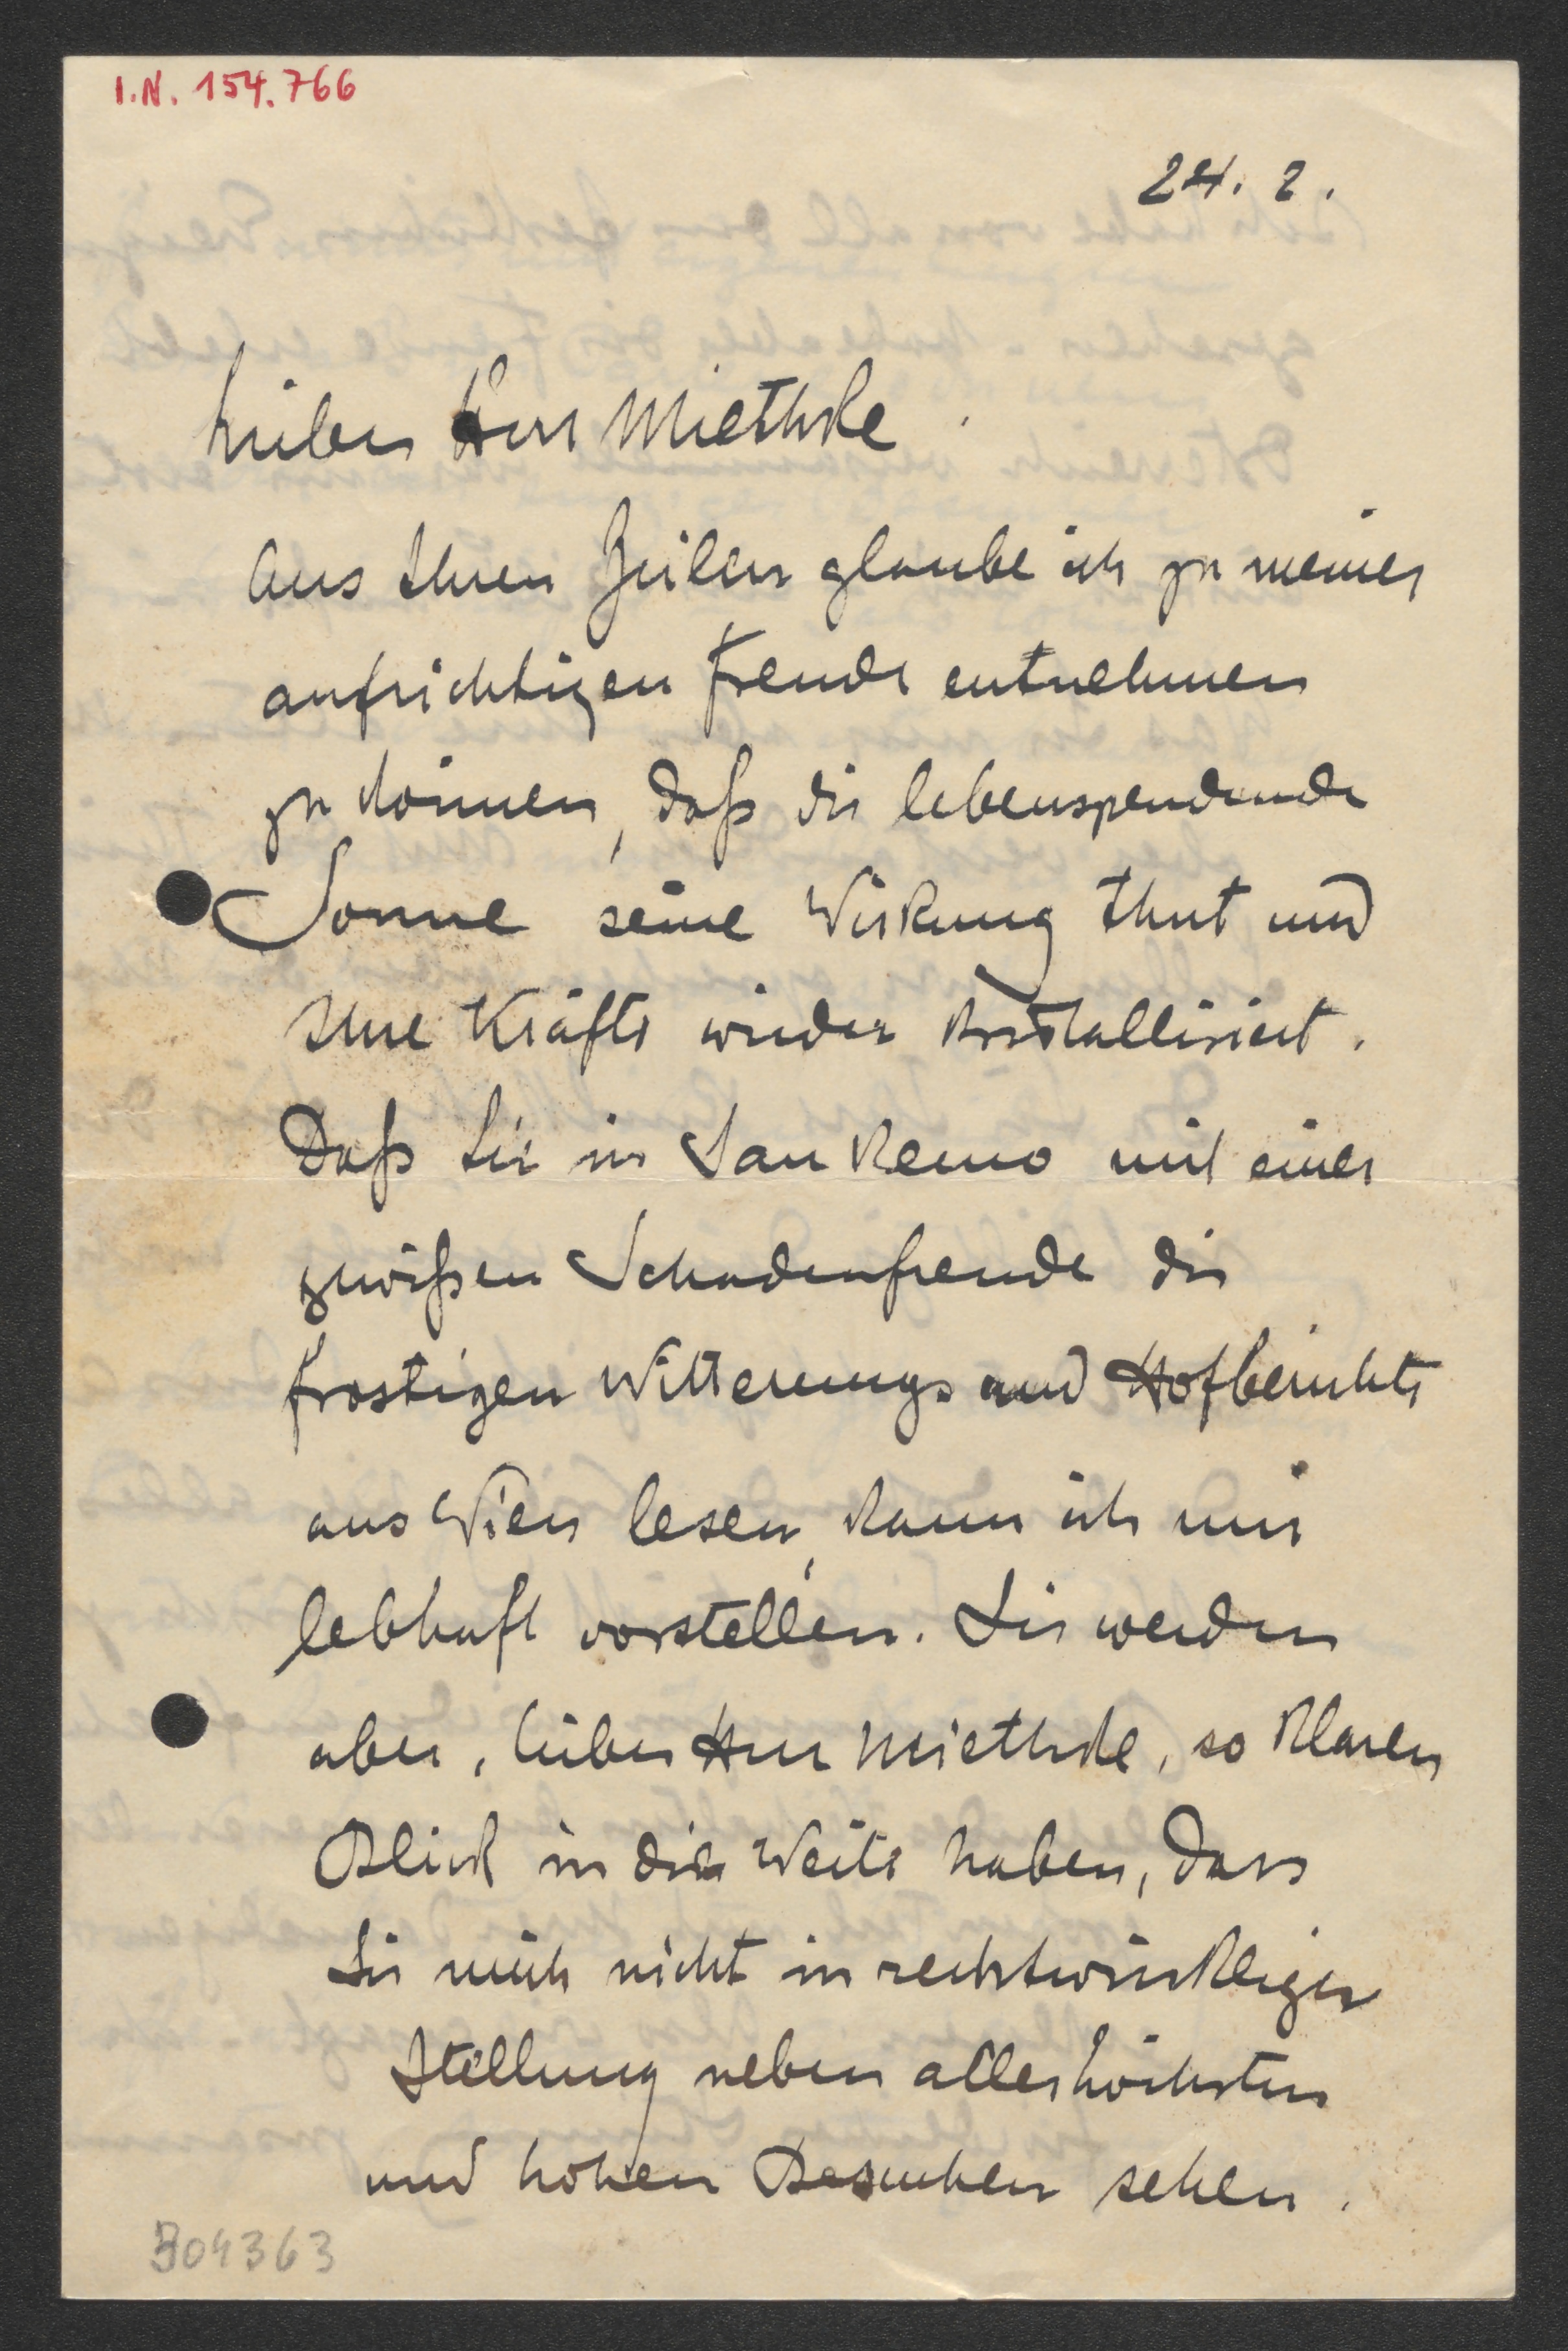 I.N. 154.766
24. 2.
Lieber Herr Miethke
Aus Ihren Zeilen glaube ich zu meiner
aufrichtigen Freude entnehmen
zu können, daß die lebenspendende
Sonne seine Wirkung thut und
Ihre Kräfte wieder kristallisiert.
Daß Sie in San Remo mit einer
gewißen Schadenfreude die
frostigen Witterungs und Hofberichte
aus Wien lesen, kann ich mir
lebhaft vorstellen. Sie werden
aber, lieber Herr Miethke, so klaren
Blick in die Weite haben, dass
Sie mich nicht in rechtwinkliger
Stellung neben allerhöchsten
und hohen Besuchen sehen.
304363